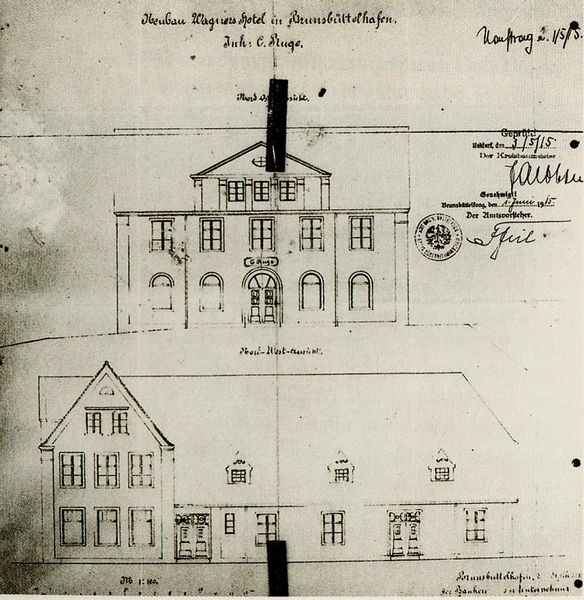 Neubau Wagners Hotel in Brunsbüttelhafen.
Inh: C. Ruge.
Nord Ost Ansicht.
1/5/15.
Geprüft
Meldorf, den 3/5/15
Der Kreisbaumeister
Jacobsen
Genehmigt
Brunsbüttelkoog, den 1. Juni 1915
Der Amtsvorsteher.
C Ruge
Nord-West-Ansicht.
M 1:100.
Brunsbüttelhafen, d.
der Bauherr der Unternehmer